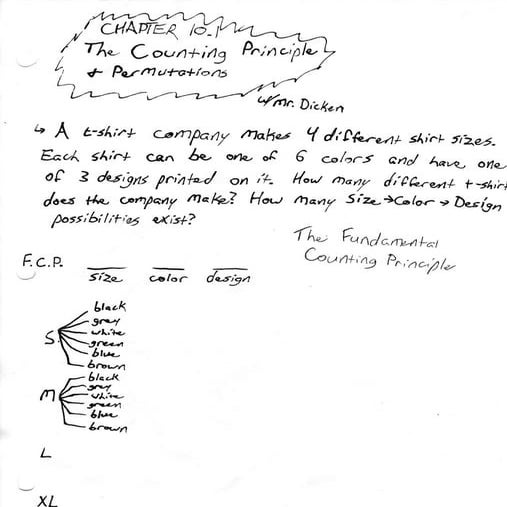 CHAPTER 10.1
The Counting Principle
+ Permutations
w/ Mr. Dicken
↳ A t-shirt company makes 4 different shirt sizes.
Each shirt can be one of 6 colors and have one
of 3 designs printed on it. How many different t-shirt
does the company make? How many Size→Color→Design
possibilities exist?
The Fundamental
Counting Principle
F.C.P.
size color design
black
grey
white
S. green
blue
brown
black
grey
M white
green
blue
brown
L
XL